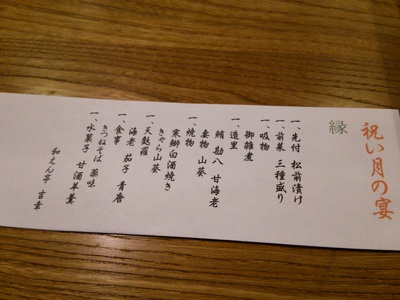 祝い月の宴
縁
一、先付 松前漬け
一、前菜 三種盛り
一、吸物
御雑煮
一、造里
鮪 勘八 甘海老
妻物 山葵
一、焼物
寒鰤白酒焼き
きゃら山葵
一、天麩羅
海老 茄子 青唐
一、食事
きつねそば 薬味
一、水菓子 甘酒羊羹
和えん亭 吉幸